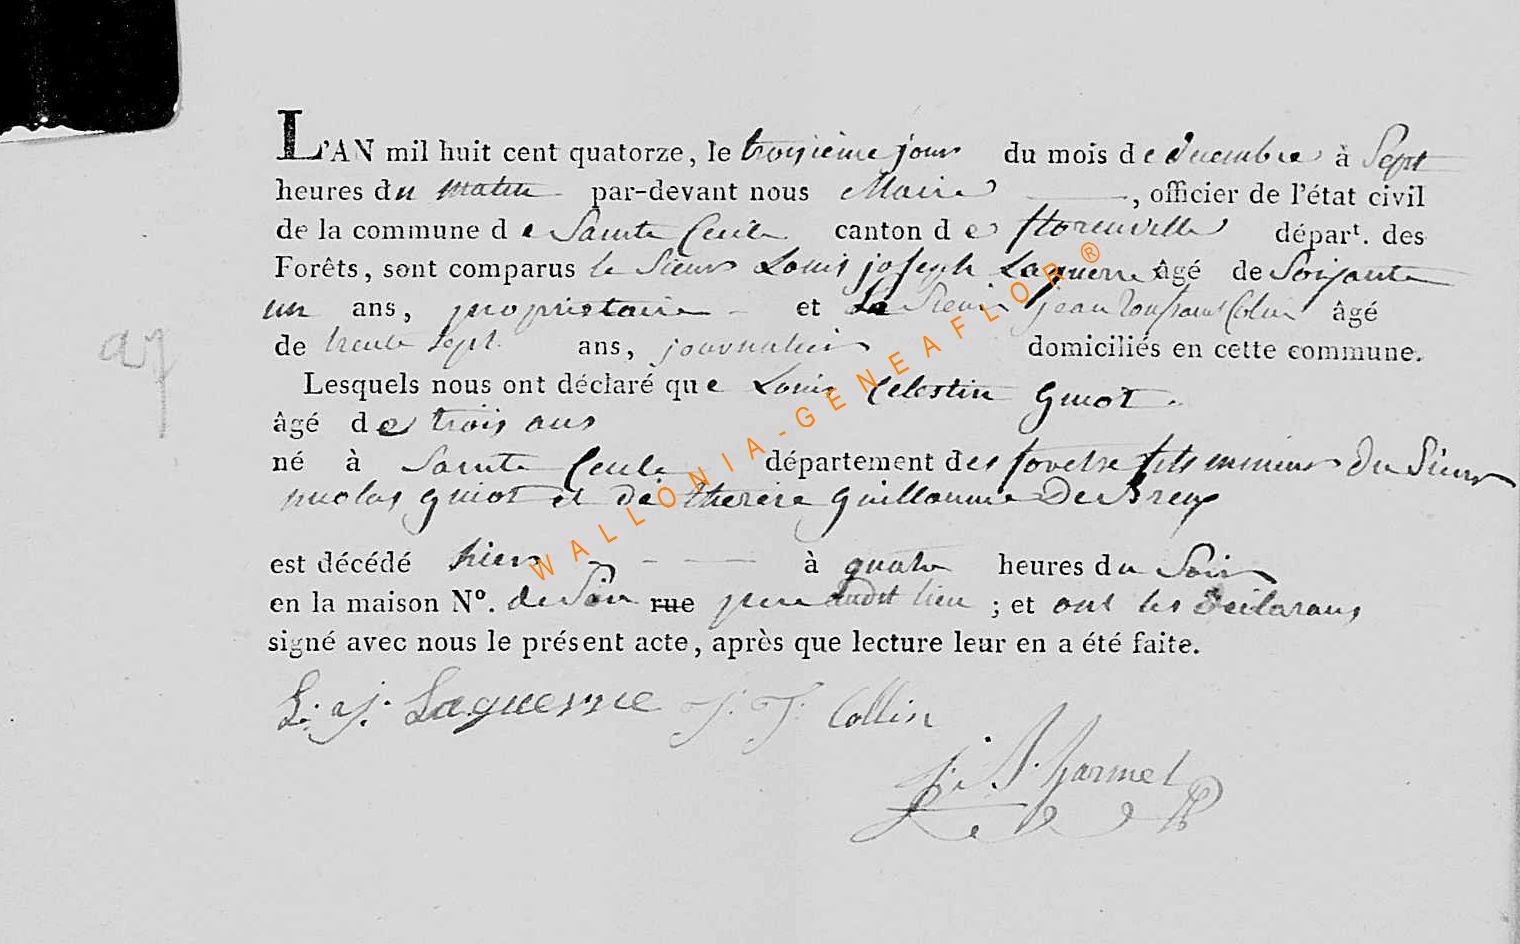 L'AN mil huit cent quatorze, le troisième jour du mois de decembre à Sept
heures du matin par-devant nous Maire, officier de l'état civil
de la commune de Sainte Cecile canton de florenville départ. des
Forêts, sont comparus le Sieur Louis joseph Laguerre âgé de Soixante
un ans, propriétaire et Le Sieur jean Toussaint Colin âgé
de trente Sept ans, journalier domiciliés en cette commune.
Lesquels nous ont déclaré que Louis Celestin Guiot
âgé de trois ans
né à Sainte Cecile département des forets fils mineur du Sieur
nicolas Guiot et de therese Guillaume De Breux
est décédé hier à quatre heures du Soir
en la maison N°. de Son rue pere audit lieu ; et ont les declarans
signé avec nous le présent acte, après que lecture leur en a été faite.
L. j. Laguerre J. T. Collin
WALLONIA-GENEAFLOR®